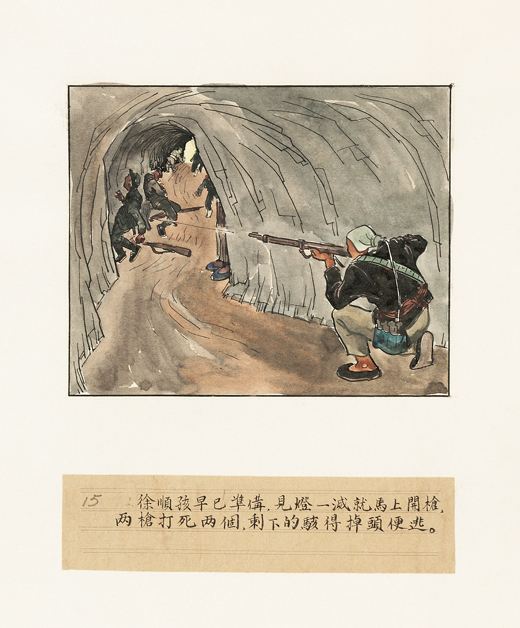 15 徐順孩早已準備,見燈一滅就馬上開槍,
两槍打死两個,剩下的駭得掉頭便逃。